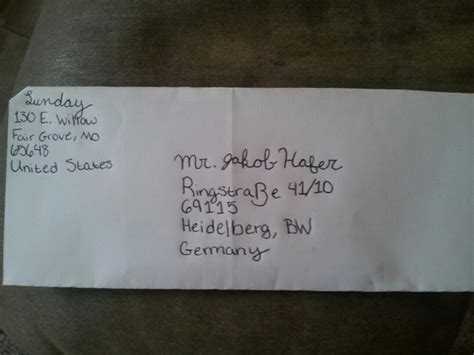 Lunday
130 E. Willow
Fair Grove, MO
65648
United States
Mr. Jakob Hafer
Ringstraße 41/10
69115
Heidelberg, BW
Germany